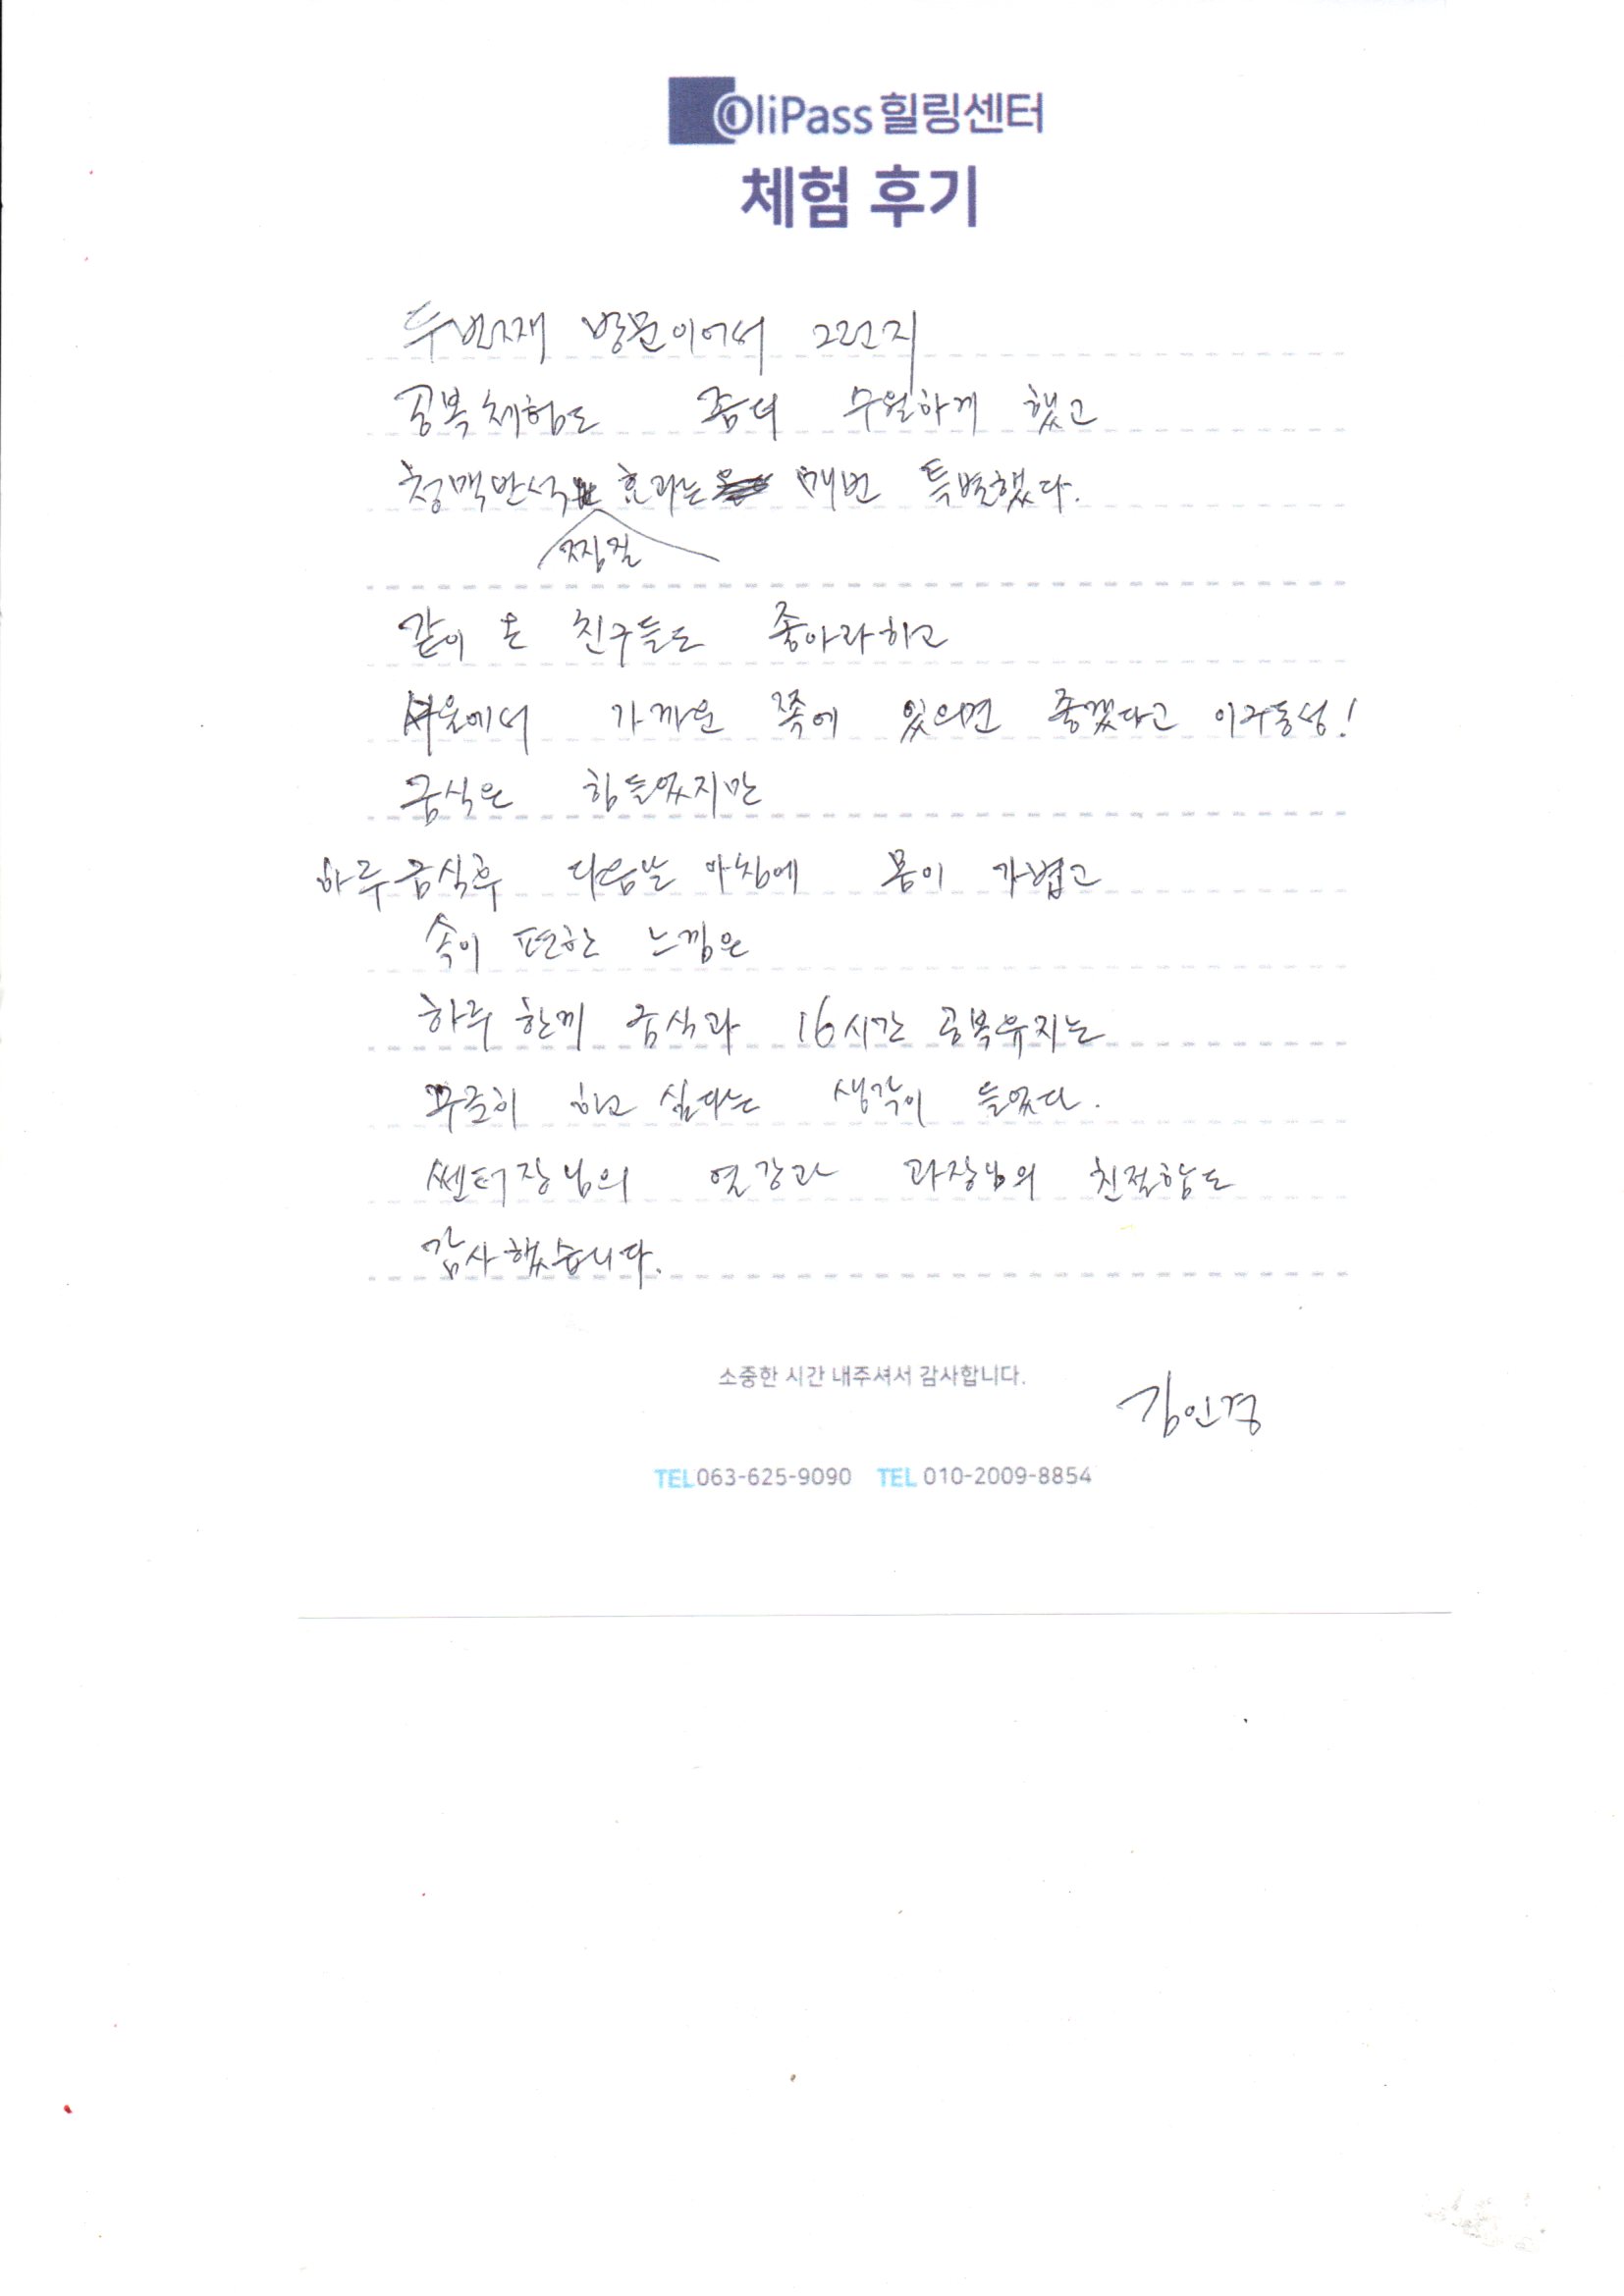 OliPass 힐링센터
체험 후기
두번째 방문이어서 그런지
공복체험도 좀더 수월하게 했고
청맥반석 효과는 매번 특별했다.
찜질
같이 온 친구들도 좋아라하고
서울에서 가까운 쪽에 있으면 좋겠다고 이구동성!
금식은 힘들었지만
하루금식후 다음날 아침에 몸이 가볍고
속이 편한 느낌은
하루 한끼 금식과 16시간 공복유지는
꾸준히 하고 싶다는 생각이 들었다.
쎈터장님의 열강과 과장님의 친절함도
감사했습니다.
소중한 시간 내주셔서 감사합니다.
김인경
TEL 063-625-9090 TEL 010-2009-8854